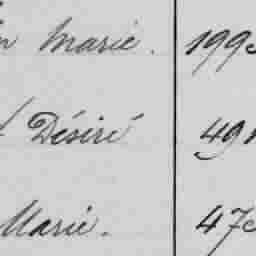 Marie. 199
Désiré 49
Marie. 47